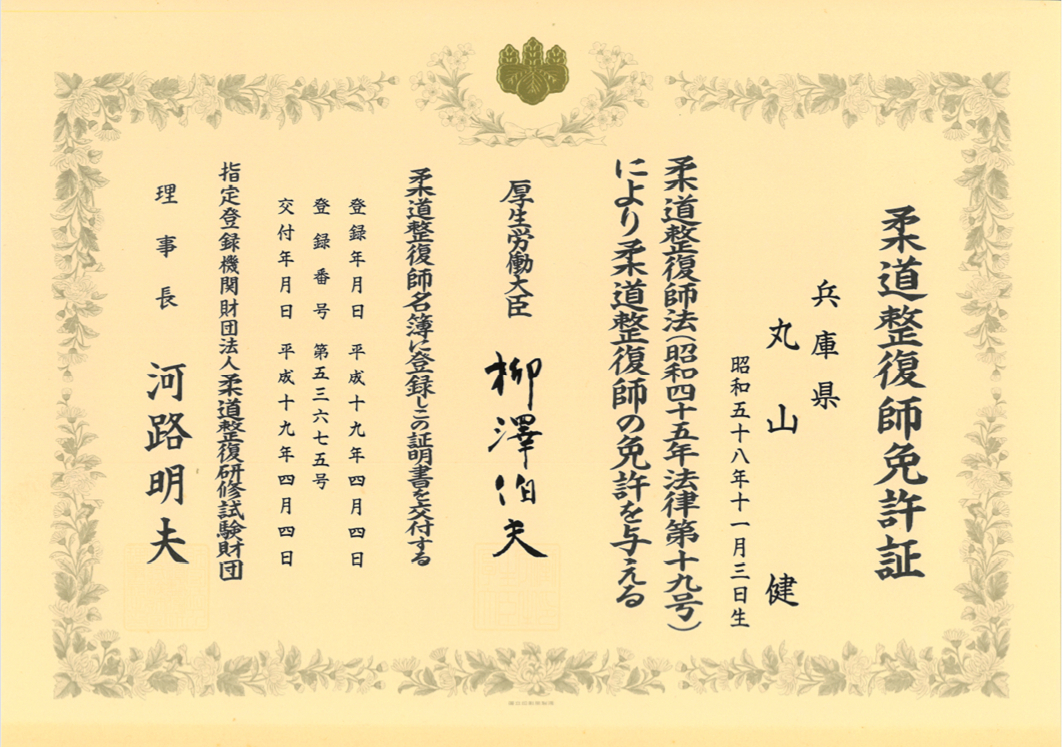 柔道整復師免許証
兵庫県
丸山 健
昭和五十八年十一月三日生
柔道整復師法（昭和四十五年法律第十九号）
により柔道整復師の免許を与える
厚生労働大臣 柳澤伯夫
柔道整復師名簿に登録しこの証明書を交付する
登録年月日 平成十九年四月四日
登録番号 第五三六七五号
交付年月日 平成十九年四月四日
指定登録機関財団法人柔道整復研修試験財団
理事長 河路明夫